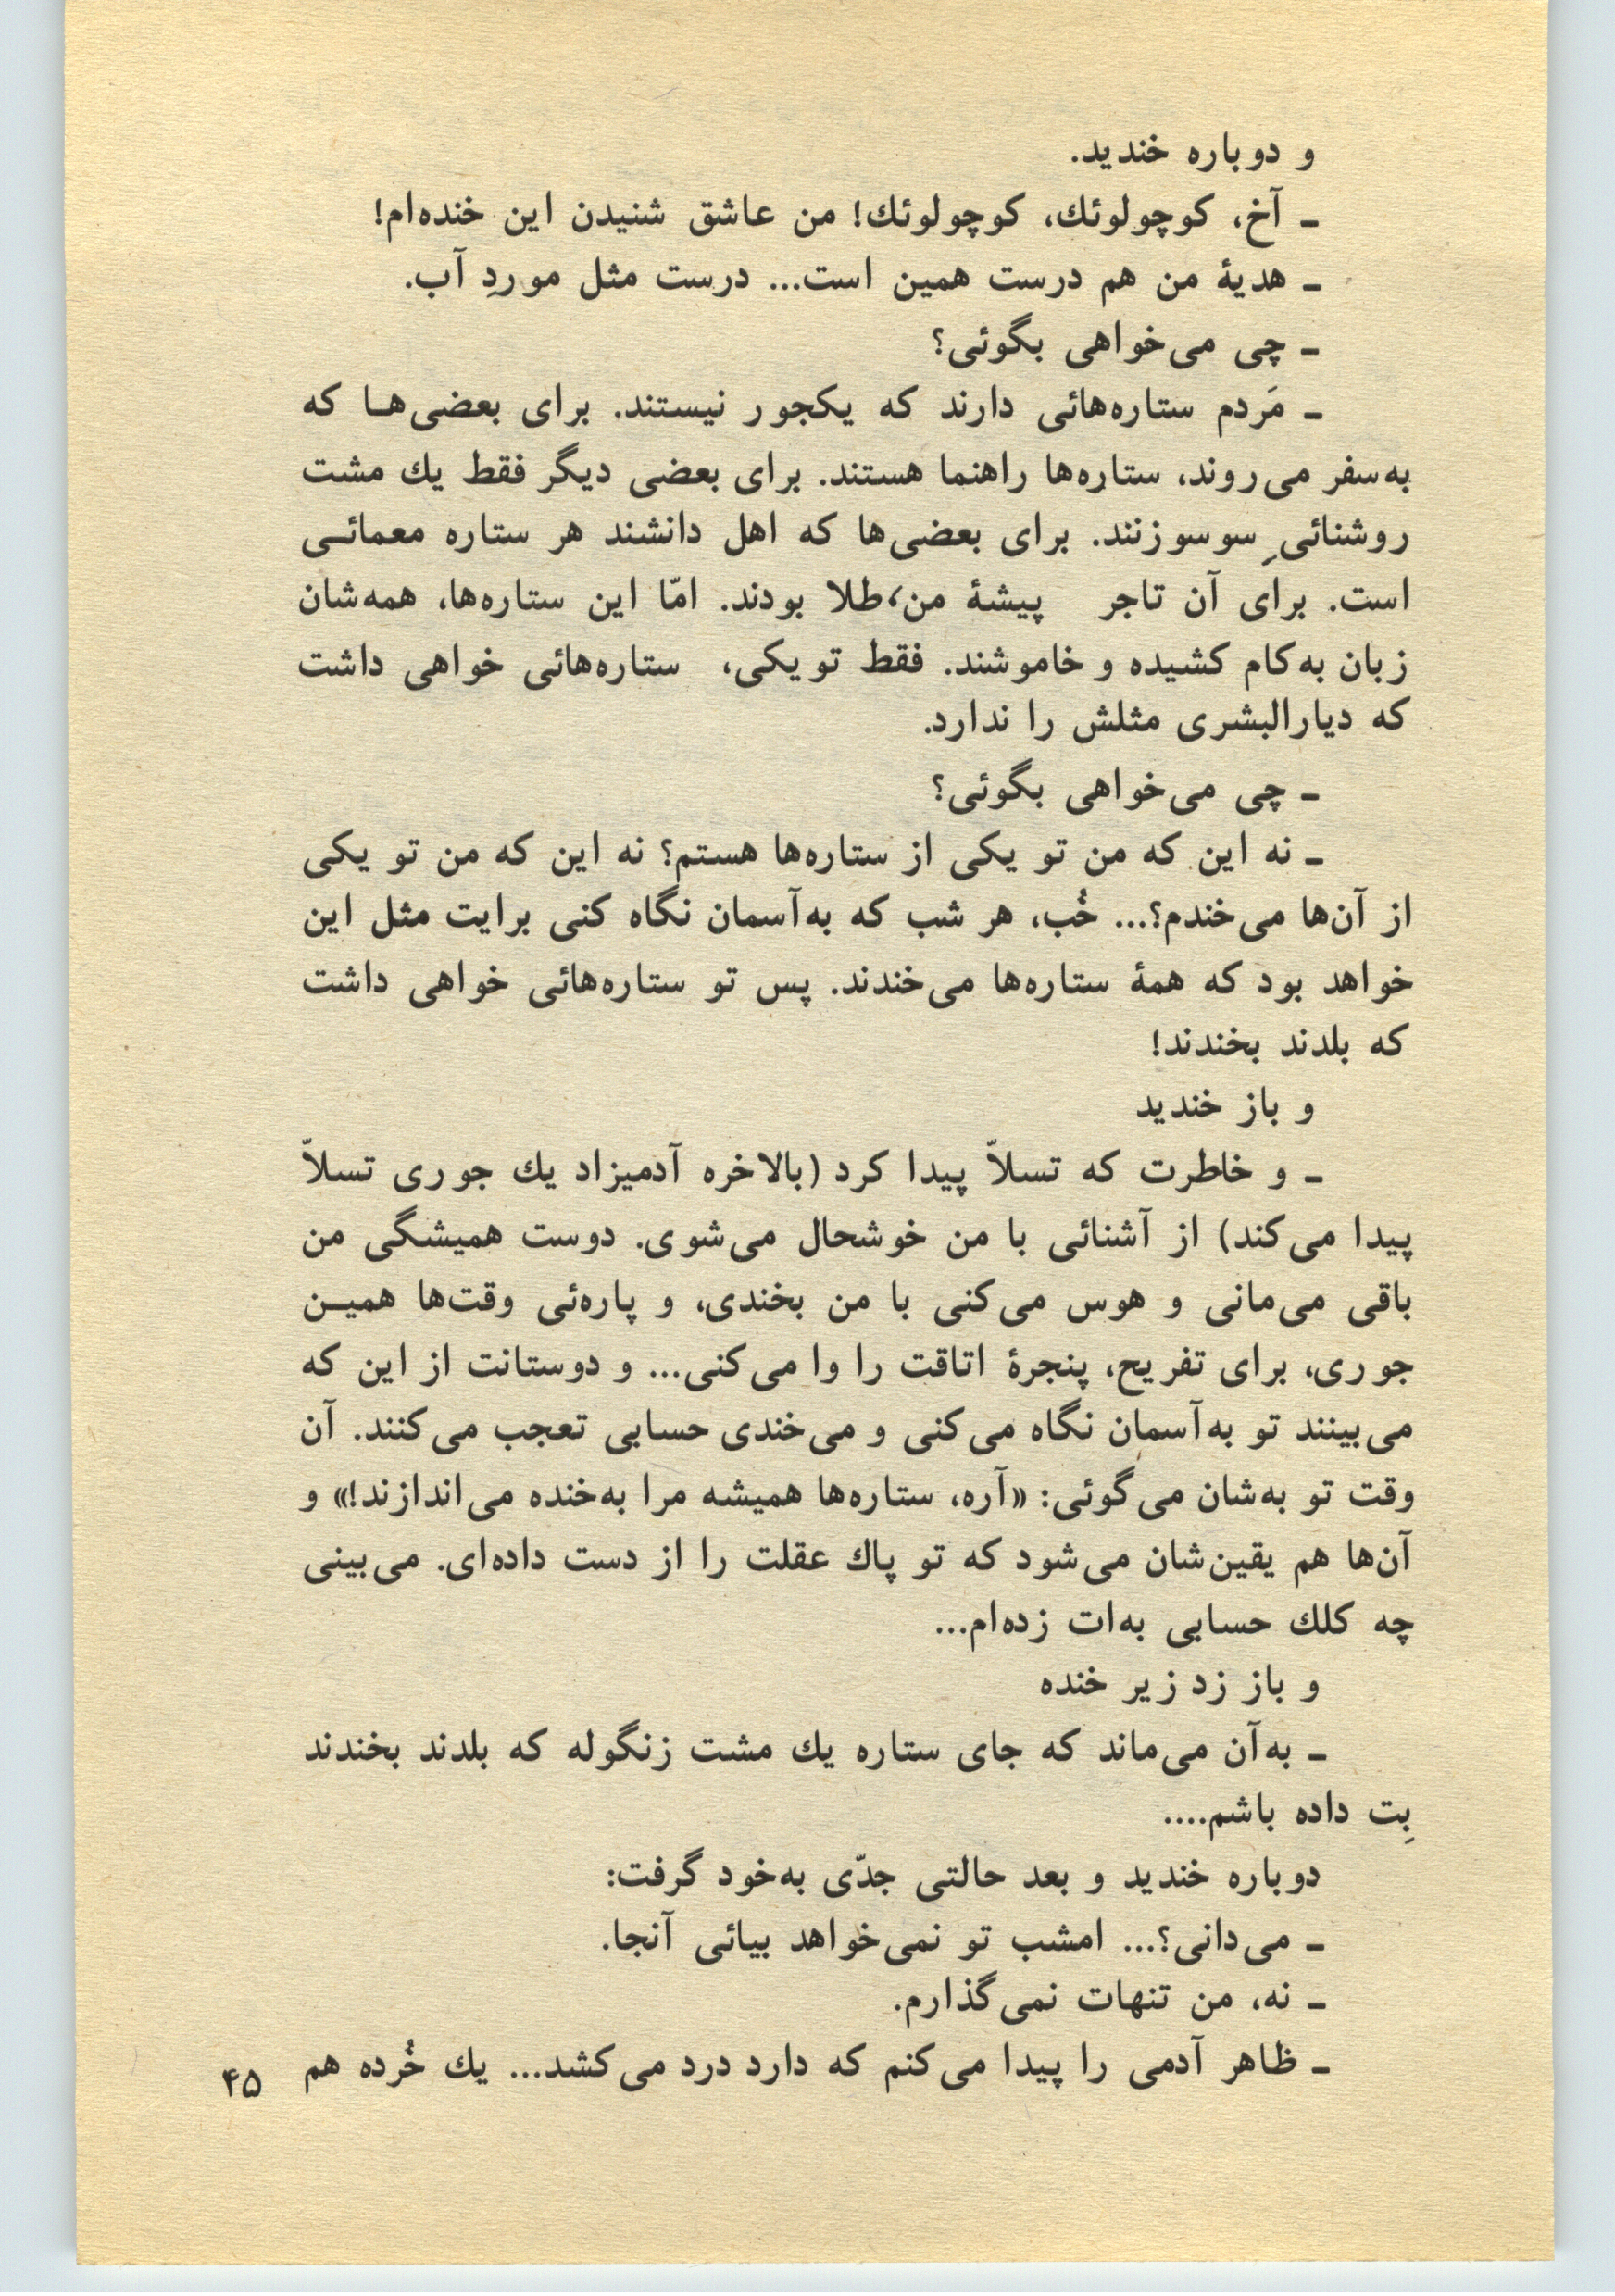 و دوباره خندید.
ـ آخ، کوچولوئك، کوچولوئك! من عاشق شنیدن این خنده‌ام!
ـ هدیهٔ من هم درست همین است... درست مثل موردِ آب.
ـ چی می‌خواهی بگوئی؟
ـ مَردم ستاره‌هائی دارند که یکجور نیستند. برای بعضی‌هـا که
به‌سفر می‌روند، ستاره‌ها راهنما هستند. برای بعضی دیگر فقط یك مشت
روشنائیِ سوسوزنند. برای بعضی‌ها که اهل دانشند هر ستاره معمائـی
است. برای آن تاجر پیشهٔ من، طلا بودند. امّا این ستاره‌ها، همه‌شان
زبان به‌کام کشیده و خاموشند. فقط تو یکی، ستاره‌هائی خواهی داشت
که دیارالبشری مثلش را ندارد.
ـ چی می‌خواهی بگوئی؟
ـ نه این که من تو یکی از ستاره‌ها هستم؟ نه این که من تو یکی
از آن‌ها می‌خندم؟... خُب، هر شب که به‌آسمان نگاه کنی برایت مثل این
خواهد بود که همهٔ ستاره‌ها می‌خندند. پس تو ستاره‌هائی خواهی داشت
که بلدند بخندند!
و باز خندید
ـ و خاطرت که تسلاّ پیدا کرد (بالاخره آدمیزاد یك جوری تسلاّ
پیدا می‌کند) از آشنائی با من خوشحال می‌شوی. دوست همیشگی من
باقی می‌مانی و هوس می‌کنی با من بخندی، و پاره‌ئی وقت‌ها همیـن
جوری، برای تفریح، پنجرهٔ اتاقت را وا می‌کنی... و دوستانت از این که
می‌بینند تو به‌آسمان نگاه می‌کنی و می‌خندی حسابی تعجب می‌کنند. آن
وقت تو به‌شان می‌گوئی: «آره، ستاره‌ها همیشه مرا به‌خنده می‌اندازند!» و
آن‌ها هم یقین‌شان می‌شود که تو پاك عقلت را از دست داده‌ای. می‌بینی
چه کلك حسابی به‌ات زده‌ام...
و باز زد زیر خنده
ـ به‌آن می‌ماند که جای ستاره یك مشت زنگوله که بلدند بخندند
بِت داده باشم....
دوباره خندید و بعد حالتی جدّی به‌خود گرفت:
ـ می‌دانی؟... امشب تو نمی‌خواهد بیائی آنجا.
ـ نه، من تنهات نمی‌گذارم.
ـ ظاهر آدمی را پیدا می‌کنم که دارد درد می‌کشد... یك خُرده هم
۴۵